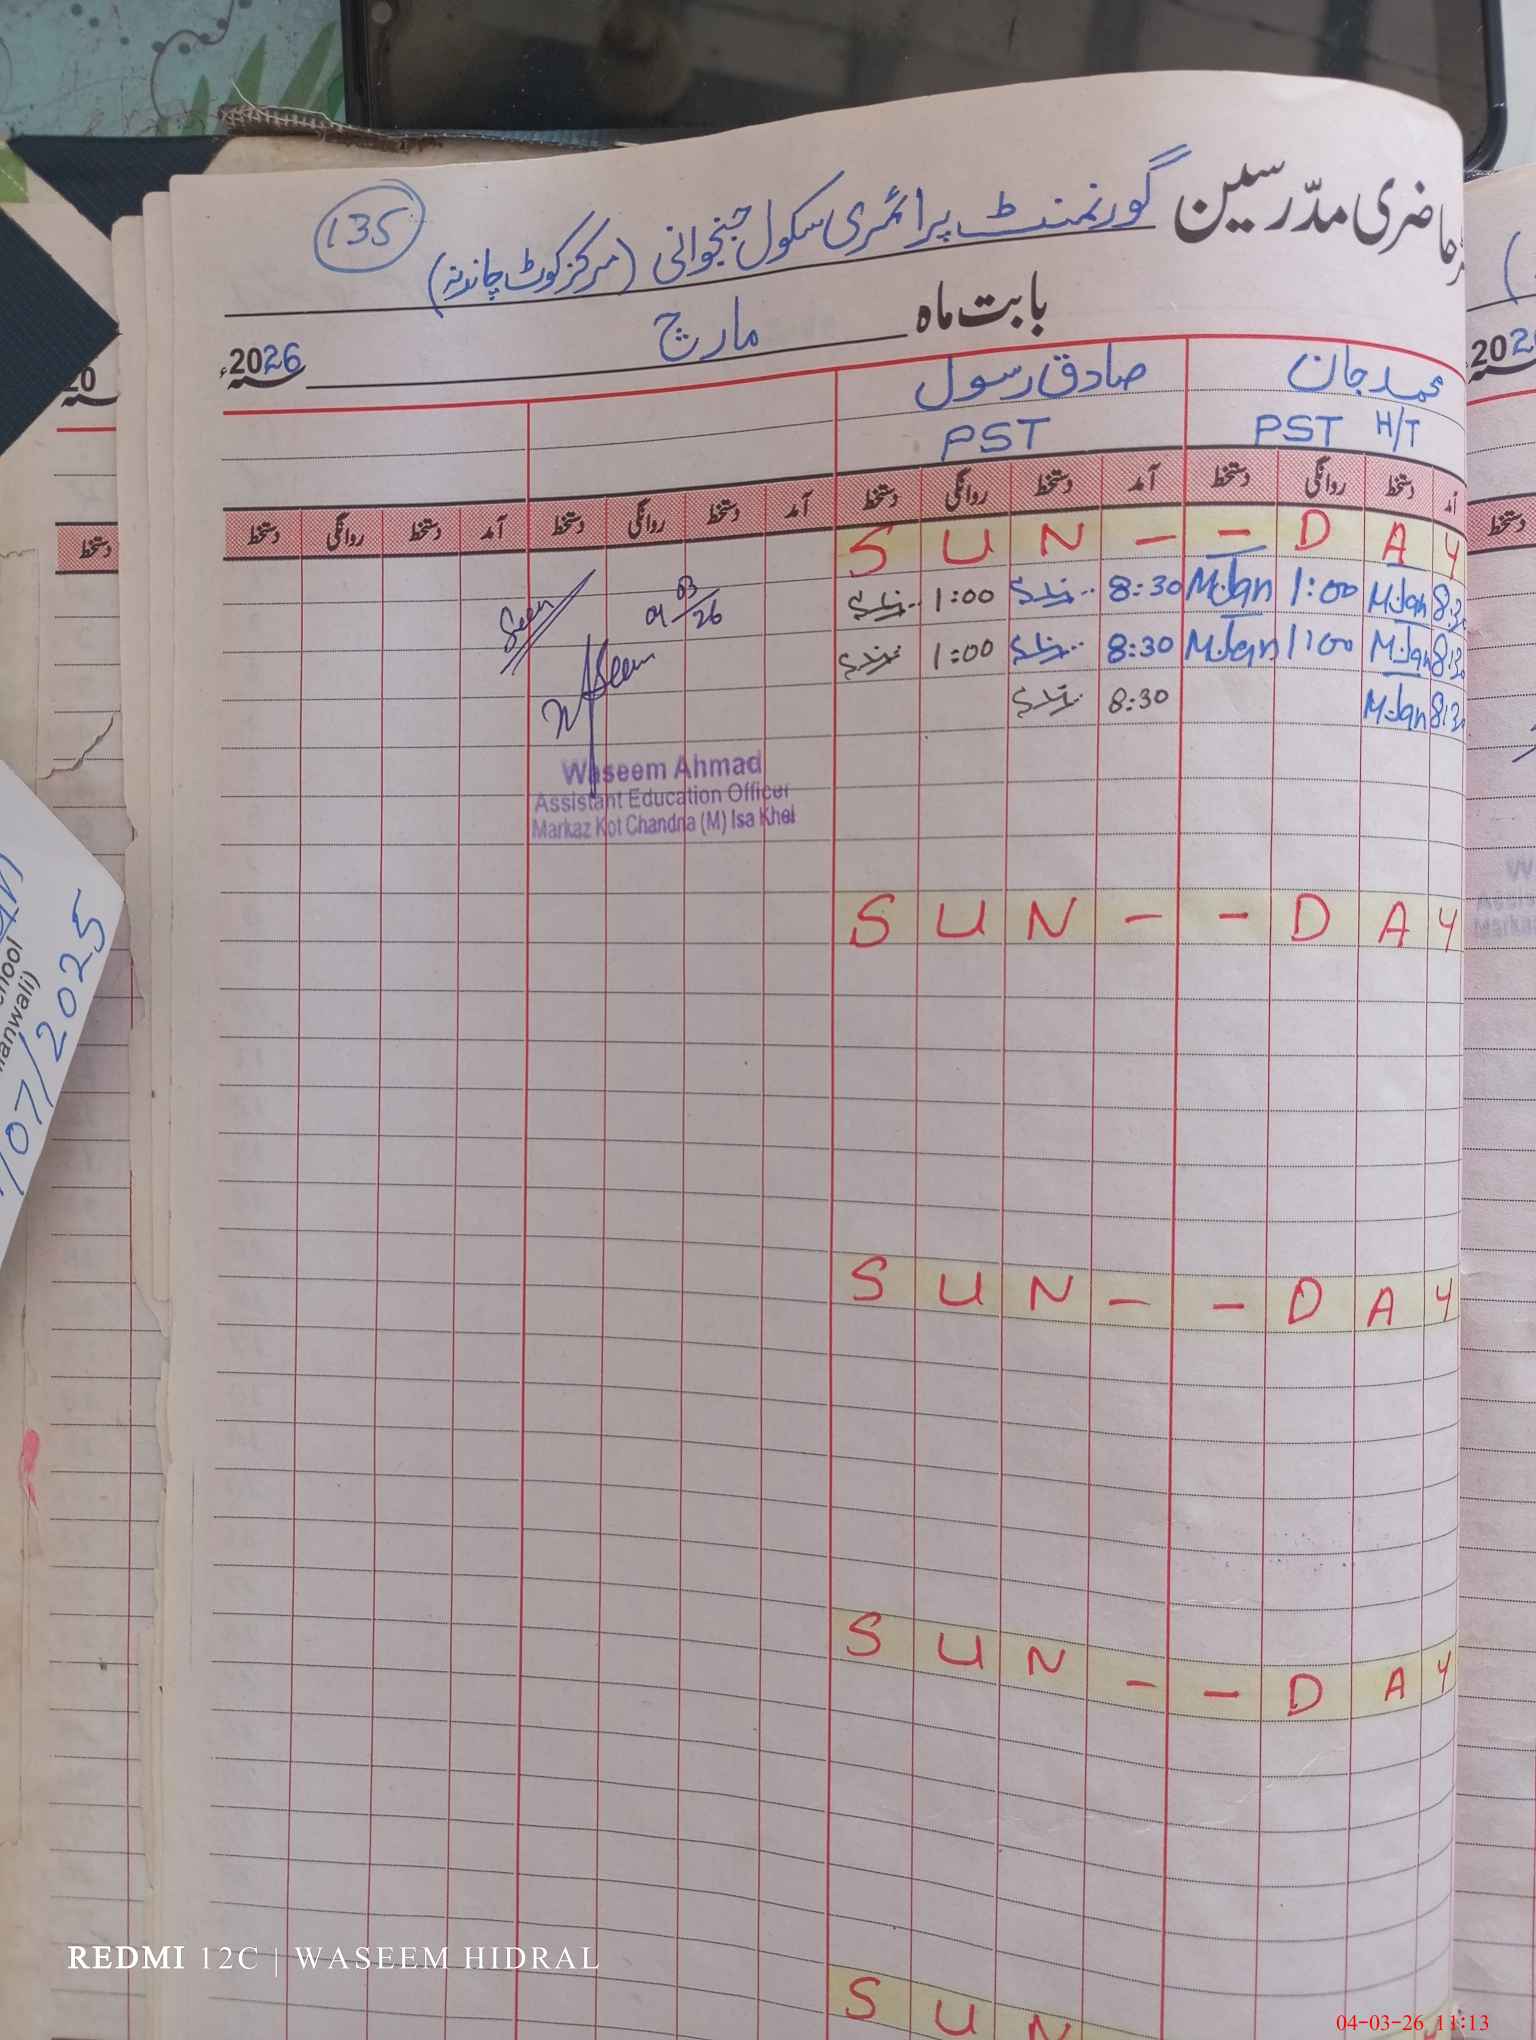 حاضری مدرسین گورنمنٹ پرائمری سکول جنجوانی (مرکز کوٹ چاندنہ)
135
بابت ماہ مارچ 2026ء
محمد جان
صادق رسول
PST H/T
PST
آمد دستخط روانگی دستخط آمد دستخط روانگی دستخط آمد دستخط روانگی دستخط آمد دستخط روانگی دستخط
S U N - - D A Y
1:00 8:30 M.Jan 1:00 M.Jan
1:00 8:30 M.Jan 1:00 M.Jan
8:30 M.Jan
Seen
04/03/26
Waseem
Waseem Ahmad
Assistant Education Officer
Markaz Kot Chandna (M) Isa Khel
S U N - - D A Y
S U N - - D A Y
S U N - - D A Y
S U N
20
دستخط
/07/2025
202
دستخط
REDMI 12C | WASEEM HIDRAL
04-03-26 11:13